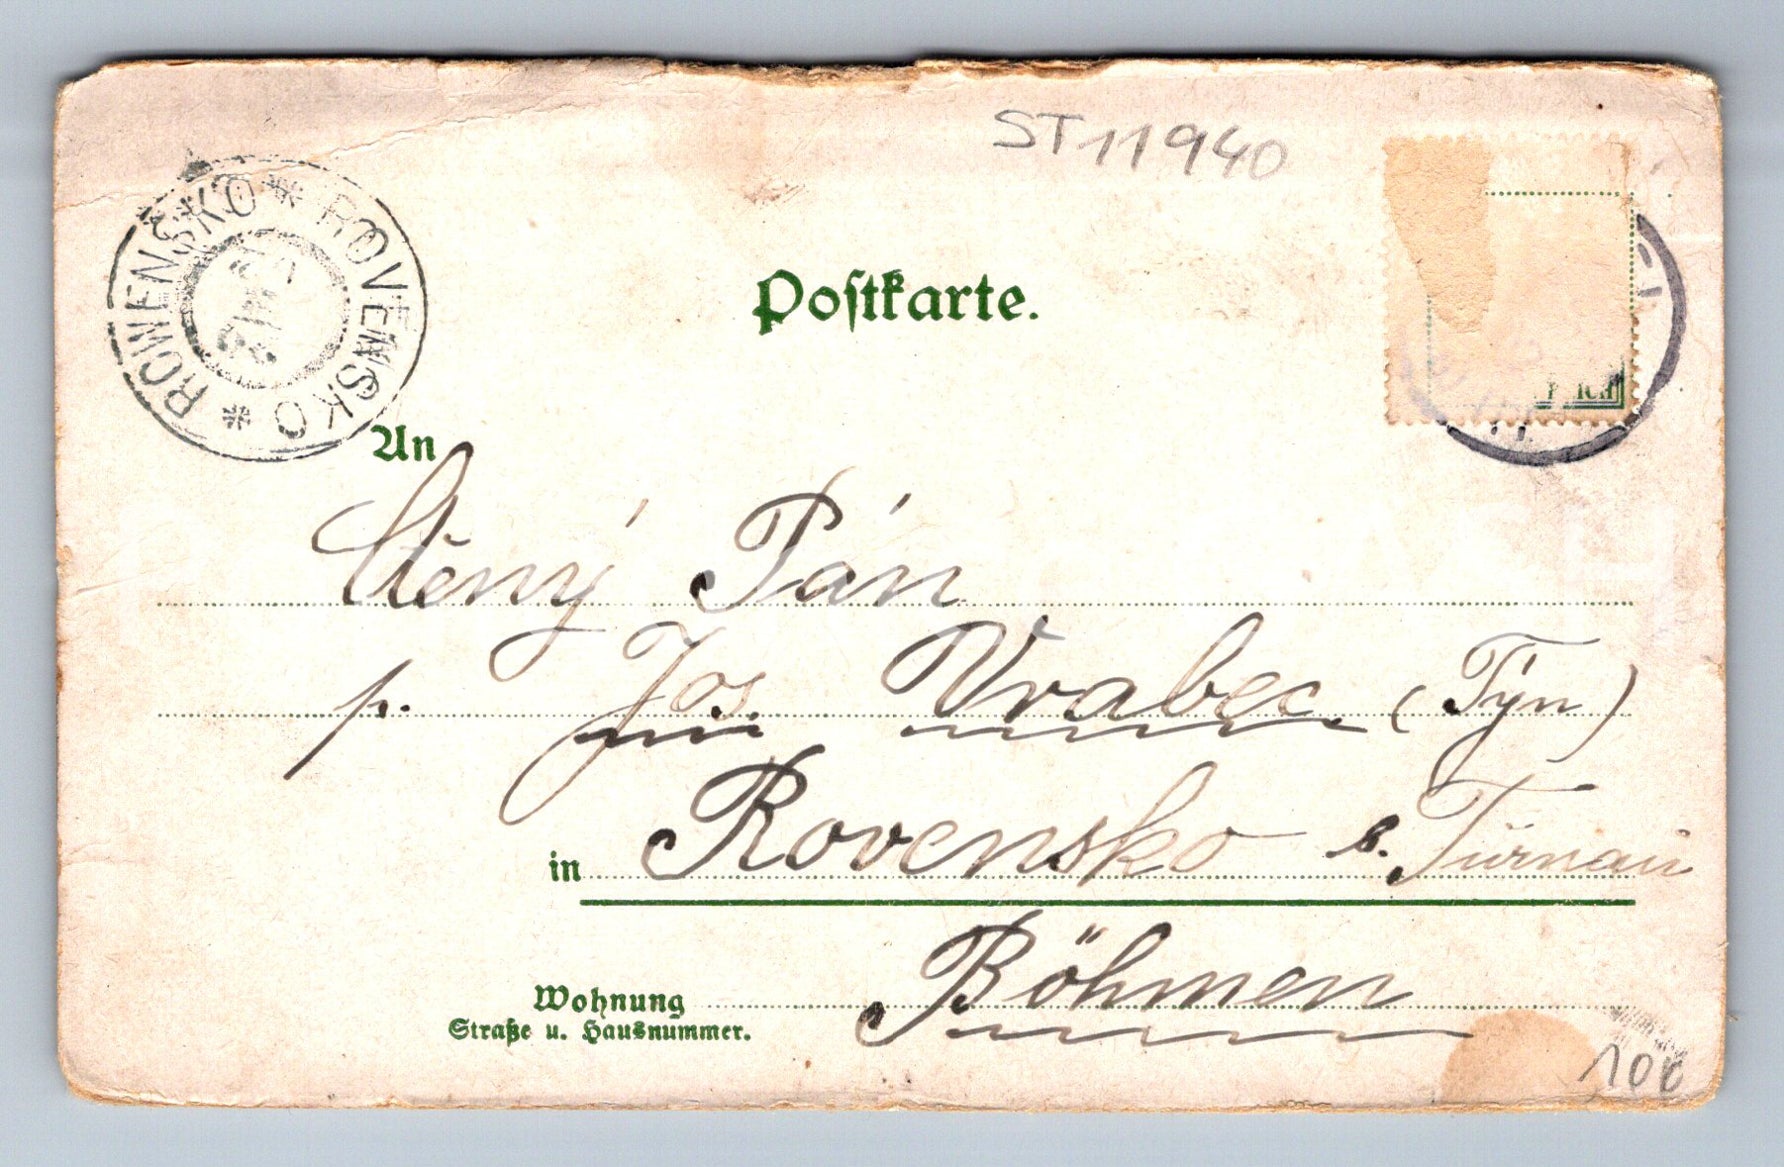 ST11940
ROWENSKO * ROVENSKO *
Postkarte.
An
Ctěný Pán
p. Jos. Vrabec. (Týn)
in Rovensko b. Turnau
Böhmen
Wohnung
Straße u. Hausnummer.
10€